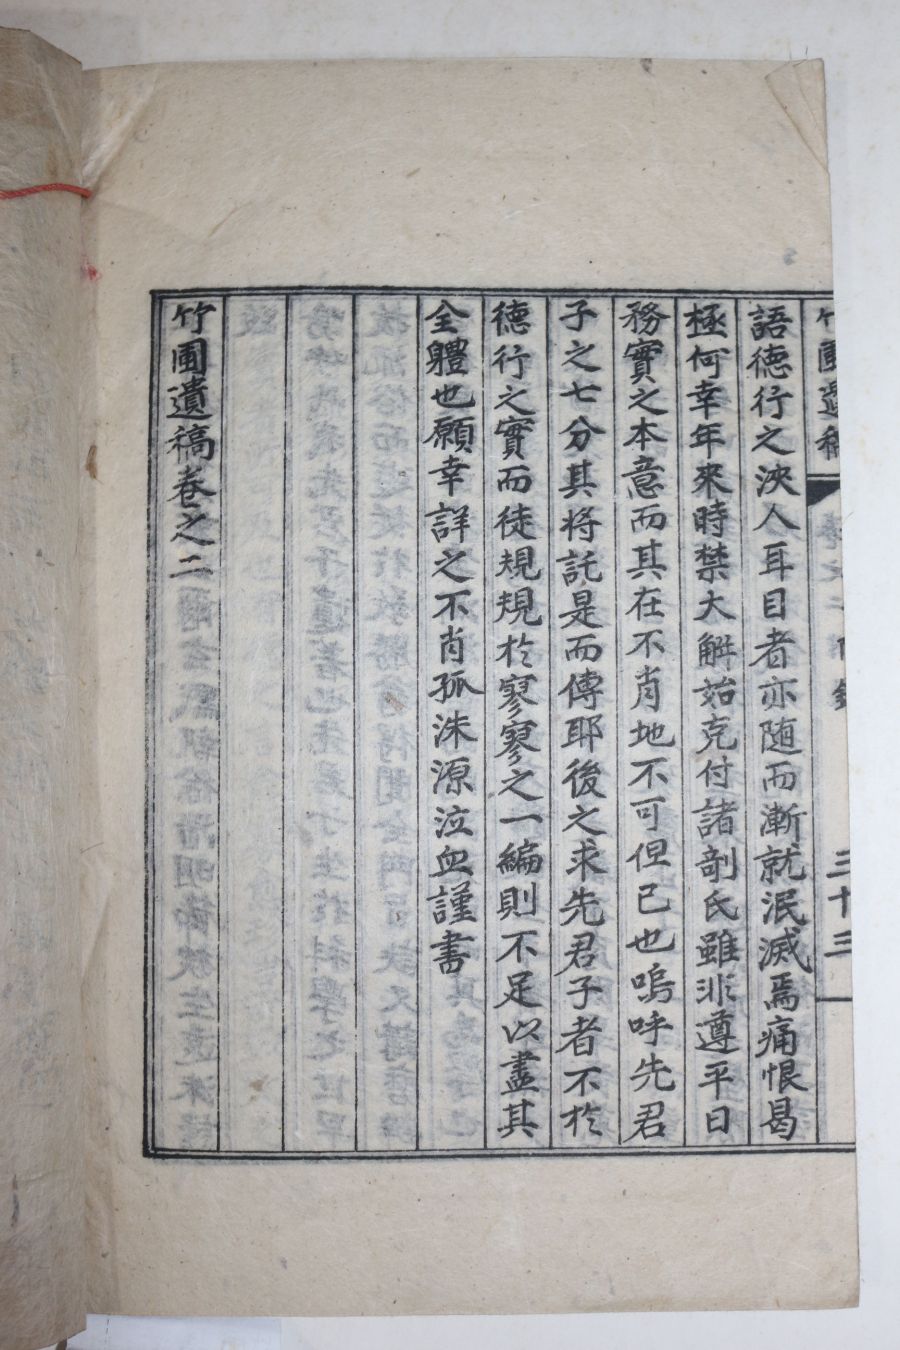 竹圃遺稿
卷之二 附錄
三十三
語德行之浹人耳目者亦随而漸就泯滅焉痛恨曷
極何幸年來時禁大解始克付諸剞氏雖非遵平日
務實之本意而其在不肖地不可但已也嗚呼先君
子之七分其将託是而傳耶後之求先君子者不於
德行之實而徒規規於寥寥之一編則不足以盡其
全體也願幸詳之不肖孤洙源泣血謹書
竹圃遺稿卷之二